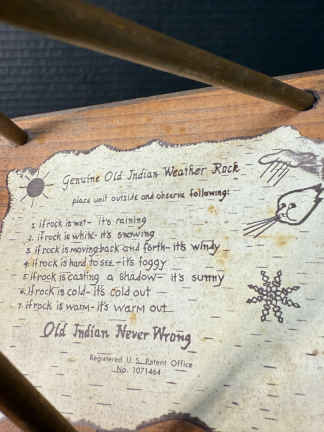 Genuine Old Indian Weather Rock
place unit outside and observe following:
1. if rock is wet- it's raining
2. if rock is white- it's snowing
3. if rock is moving back and forth- it's windy
4. if rock is hard to see- it's foggy
5. if rock is casting a shadow- it's sunny
6. if rock is cold- it's cold out
7. if rock is warm- it's warm out
Old Indian Never Wrong
Registered U.S. Patent Office
No. 1071464